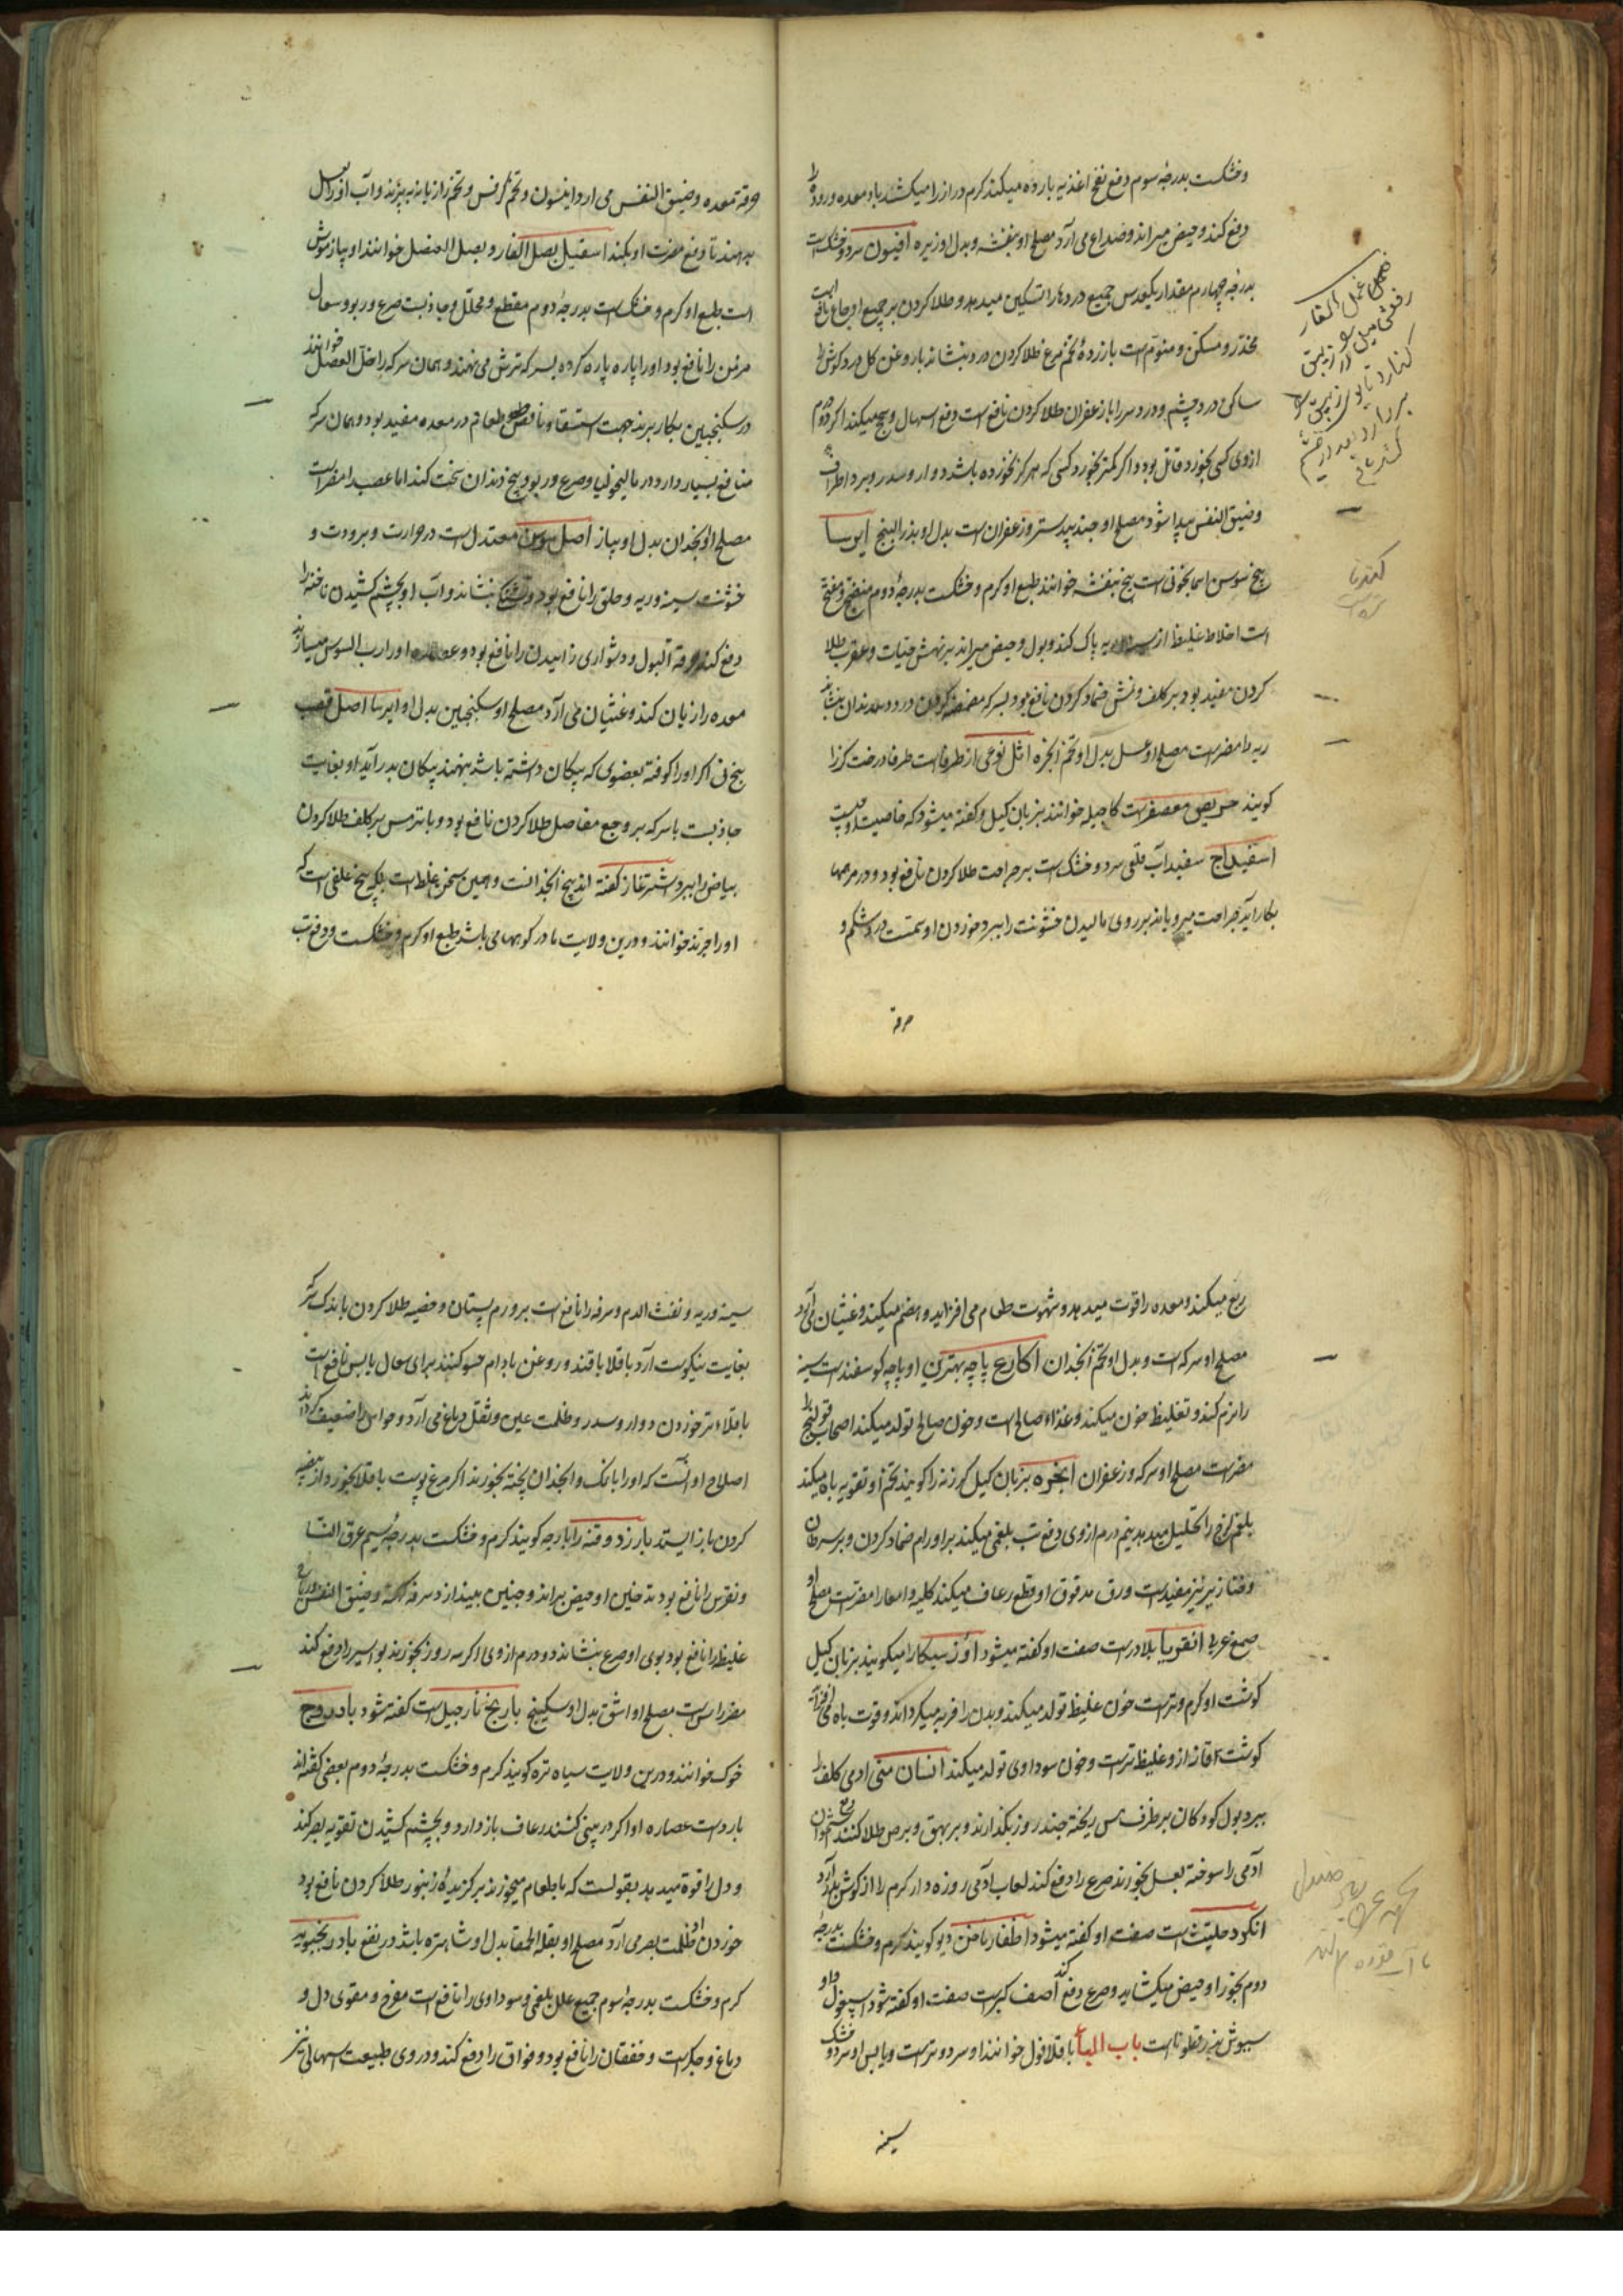 وخشکست بدرجهٔ سوم دفع نفخ اغذیه بارده میکند کرم دراز را میکشد باد معده ورودهٔ را
دفع کند وحیض میراند وصداع می آرد مصلح او بنفشه وبدل او زیره افیون سرد وخشک است
بدرجه چهارم مقدار یکعدس جمیع دردها را تسکین میدهد وطلا کردن بر جمیع اوجاع نافع است
مخدر ومسکن ومنوّم است با زردهٔ تخم مرغ طلا کردن درد بنشاند با روغن کل درد کوش را
ساکن درد چشم ودرد سر را با زعفران طلا کردن نافع است دفع اسهال وسحج میکند اکر دو درم
ازوی کسی بخورد قاتل بود واکر کمتر بخورد کسی که هرکز نخورده باشد دوار وسدر وبرد اطراف
وضیق النفس پیدا شود مصلح او جندبیدستر وزعفران است بدل او بذر البنج ایرسا
بیخ سوسن اسمانجونی است بیخ بنفشه خوانند طبع او کرم وخشکست بدرجهٔ دوم منضج ومفتح
است اخلاط غلیظ از سینه وریه پاک کند وبول وحیض میراند بر نهش حیّات وعقرب طلا
کردن مفید بود بر کلف ونمش ضماد کردن نافع بود بسرکه مضمضه کردن درد دندان بنشاند
ریه را مضرست مصلح او عسل بدل او تخم انجره اثل نوعی از طرفا است طرفا درخت کز را
کویند حریص معصفرست کاجیله خوانند بزبان کیل وکفته میشود که خاصیت او چیست
اسفیداج سفیداب قلعی سرد وخشک است بر جراحت طلا کردن نافع بود ودر مرهمها
بکار آید جراحت میرویاند بر روی مالیدن خشونت را ببرد خوردن او سمّست درد شکم و
حرقة
حرقة معده وضیق النفس می آرد وانیسون وتخم کرفس وتخم رازیانه بپزند وآب او را بعسل
بدهند تا دفع مضرت او بکند اسقیل بصل الفار وبصل العنصل خوانند او پیاز موش
است طبع او کرم وخشک است بدرجهٔ دوم مقطع ومحلل وجاذبست صرع وربو وسعال
مزمن را نافع بود او را پاره پاره کرده بسرکه ترش می نهند وهمان سرکه را خل العنصل خوانند
در سکنجبین بکار برند جهت استسقا ونافع هضم طعام در معده مفید بود وهمان سرکه
منافع بسیار دارد در مالیخولیا وصرع وربو وبیخ دندان سخت کند اما عصب را مضر است
مصلح او انجدان بدل او پیاز اصل سوس معتدل است در حرارت وبرودت و
خشونت سینه وریه وحلق را نافع بود وتشنکی بنشاند وآب او بچشم کشیدن ناخنه را
دفع کند وحرقة البول ودشواری زاییدن را نافع بود وعصاره او را رب السوس میسازند
معده را زیان کند وغثیان می آرد مصلح او سکنجبین بدل او ایرسا اصل قصب
بیخ نی اکر او را کوفته بعضوی که پیکان داشته باشد بنهند پیکان بدر آید او بغایت
جاذبست با سرکه بر وجع مفاصل طلا کردن نافع بود وبا ترمس بر کلف طلا کردن
بیاض را ببرد اشترغاز کفته اند بیخ انجدانست وهمین سخن غلط است بلکه بیخ علفی است که
او را جرند خوانند ودرین ولایت ما در کوهها می باشد طبع او کرم وخشکست ودفع تب
ربع میکند ومعده را قوت میدهد وشهوت طعام می افزاید وهضم میکند وغثیان می آرد
مصلح او سرکه است وبدل او تخم انجدان اکارع پاچه بهترین او پاچه کوسفندست سینه
را نرم کند وتغلیظ خون میکند وغذاء صالح است وخون صالح تولد میکند اصحاب قولنج را
مضرست مصلح او سرکه وزعفران انجره بزبان کیل کرزنه را کویند تخم او تقویه باه میکند
بلغم لزج را تحلیل میدهد نیم درم ازوی دفع تب بلغمی میکند بر اورام ضماد کردن وبر سرطان
وخنازیر نیز مفیدست ورق مدقوق او قطع رعاف میکند کلیه وامعا را مضرتست مصلح او
صمغ عربی انقویا بلادرست صفت او کفته میشود اوز سیکا را میکویند بزبان کیل
کوشت او کرم وترست خون غلیظ تولد میکند وبدن را فربه میکرداند وقوت باه می افزاید
کوشت اقاز ازو غلیظ ترست وخون سوداوی تولد میکند انسان منی ادمی کلف را
ببرد بول کودکان بر ظرف مس ریخته چند روز بکذارند وبر بهق وبرص طلا کنند دفع شود استخوان
آدمی را سوخته بعسل بخورند صرع را دفع کند لعاب آدمی روزه دار کرم را از کوش بدر آرد
انکوذ حلتیت است صفت او کفته میشود اظفار ناخن دیو کویند کرم وخشکست بدرجهٔ
دوم بخور او حیض میکشاید وصرع دفع کند اصف کبرست صفت او کفته شود اسپغول داو
سیوش بزر قطوناست باب الباء باقلا فول خوانند او سرد وترست ویابس او سرد وخشک
سینه
سینه وریه ونفث الدم وسرفه را نافع است بر ورم پستان وخصیه طلا کردن با اندک سرکه
بغایت نیکوست آرد باقلا با قند وروغن بادام حسو کنند برای سعال یابس نافع است
باقلاء تر خوردن دوار وسدر وظلمت عین وثقل دماغ می آرد وحواس را ضعیف کرداند
اصلاح او آنست که او را با نمک وانجدان پخته بخورند اکر مرغ پوست باقلا بخورد از بیضه
کردن باز ایستد بارزد وقنه را بارجه کویند کرم وخشکست بدرجهٔ سیم عرق النسا
ونقرس را نافع بود تدخین او حیض براند وجنین بیندازد سرفه کهنه وضیق النفس وریاح
غلیظ را نافع بود بوی او صرع بنشاند دو درم ازوی اکر سه روز بخورند بواسیر را دفع کند
مضر راس است مصلح او اشق بدل او سکبینج بارنج نارجیل است کفته شود بادروج
خوک خوانند ودرین ولایت سیاه تره کویند کرم وخشکست بدرجهٔ دوم بعضی کفته اند
باردست عصاره او اکر در بینی کشند رعاف باز دارد وبچشم کشیدن تقویه بصر کند
ودل را قوة میدهد بقولست که با طعام میخورند بر کزیدهٔ زنبور طلا کردن نافع بود
خوردن او ظلمت بصر می آرد مصلح او بقلة الحمقا بدل او شاهتره باشد در نفع بادرنجبویه
کرم وخشکست بدرجه سوم جمیع علل بلغمی وسوداوی را نافع است مفرح ومقوی دل و
دماغ وجکرست وخفقان را نافع بود وفواق را دفع کند ودر وی طبیعت اسهالی نیز